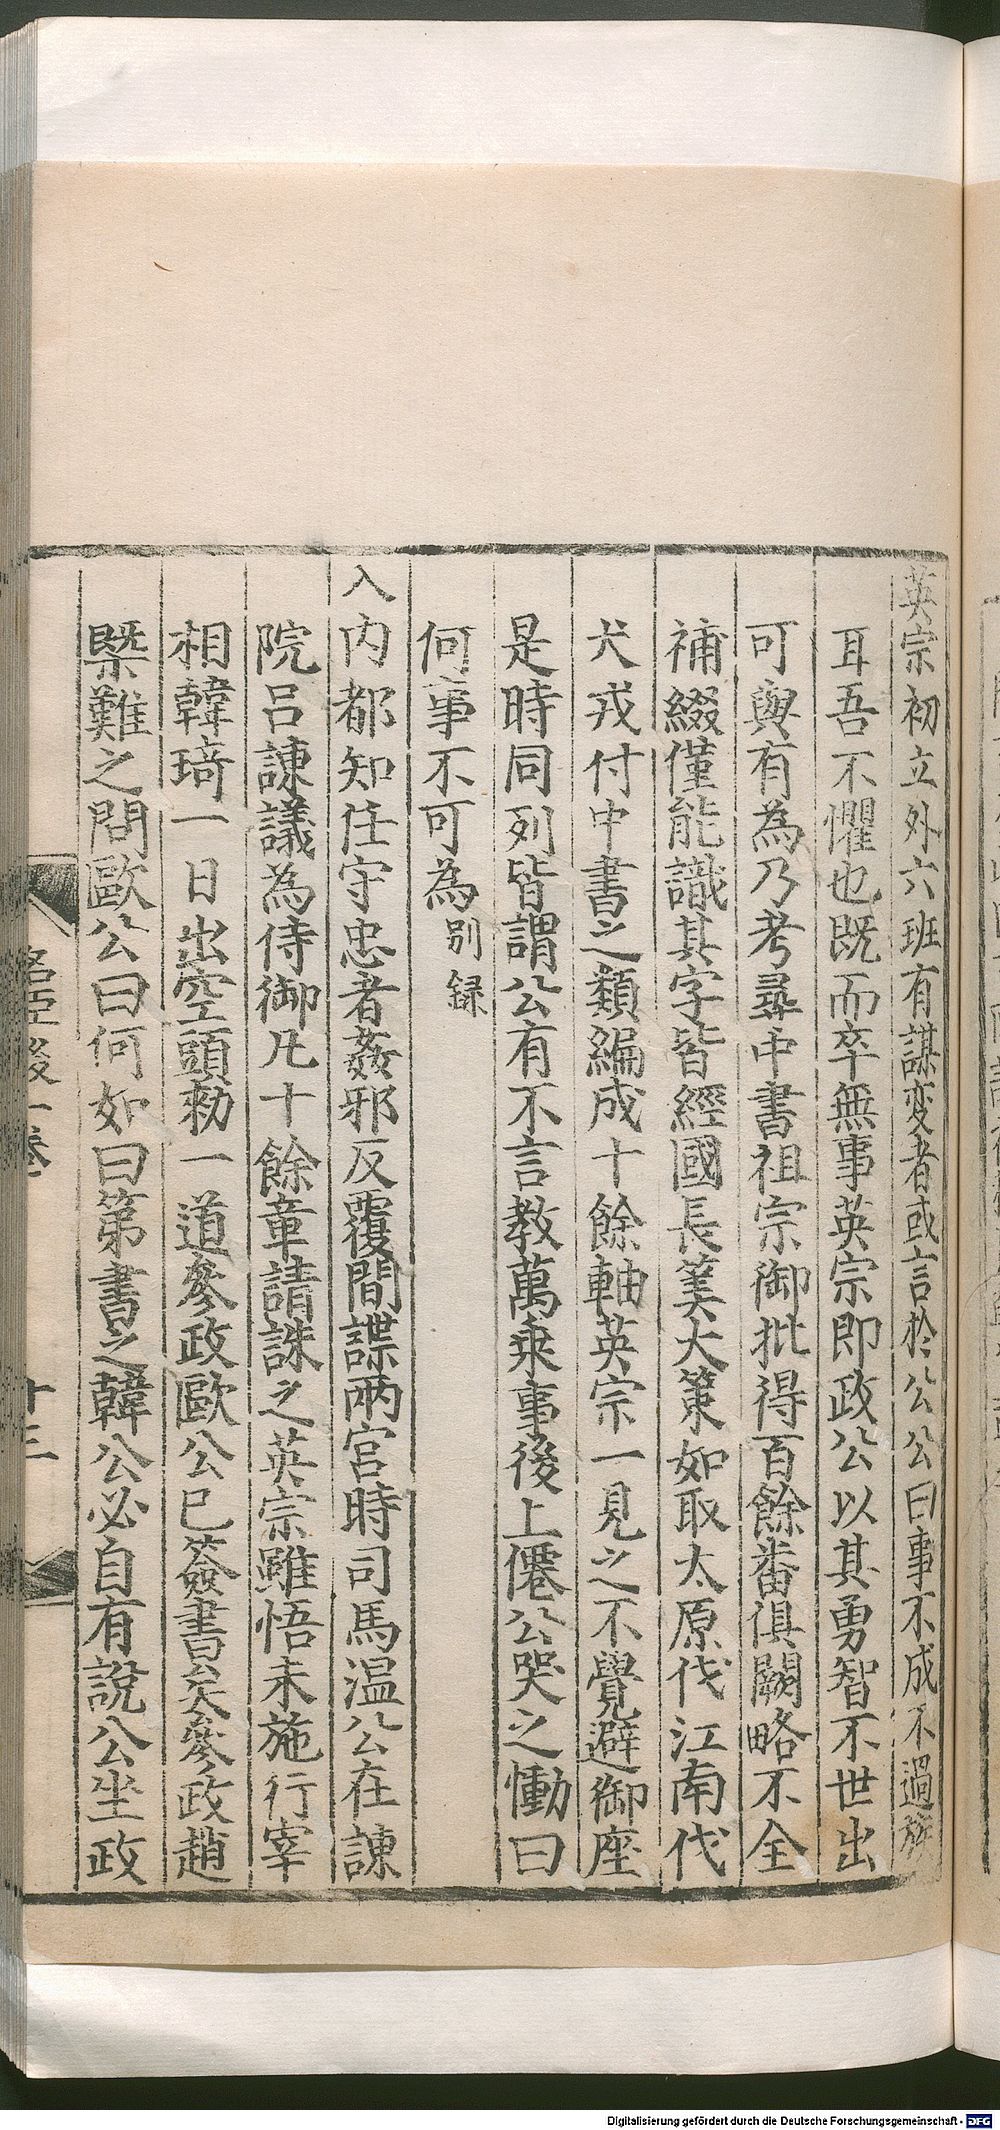 英宗初立外六班有謀变者或言於公公曰事不成不過族
耳吾不懼也既而卒無事英宗即政公以其勇智不世出
可與有為乃考尋中書祖宗御批得百餘番俱闕略不全
補綴僅能識其字皆經國長筭大策如取太原伐江南伐
犬戎付中書之類編成十餘軸英宗一見之不覺避御座
是時同列皆謂公有不言教萬乗事後上僊公哭之慟曰
何事不可為别録
入内都知任守忠者姦邪反覆間諜兩宮時司馬温公在諫
院呂諫議為侍御凡十餘章請誅之英宗雖悟未施行宰
相韓琦一日出空頭勑一道參政歐公已簽書矣參政趙
槩難之問歐公曰何如曰第書之韓公必自有說公坐政
名臣後一卷
十三
Digitalisierung gefördert durch die Deutsche Forschungsgemeinschaft - DFG